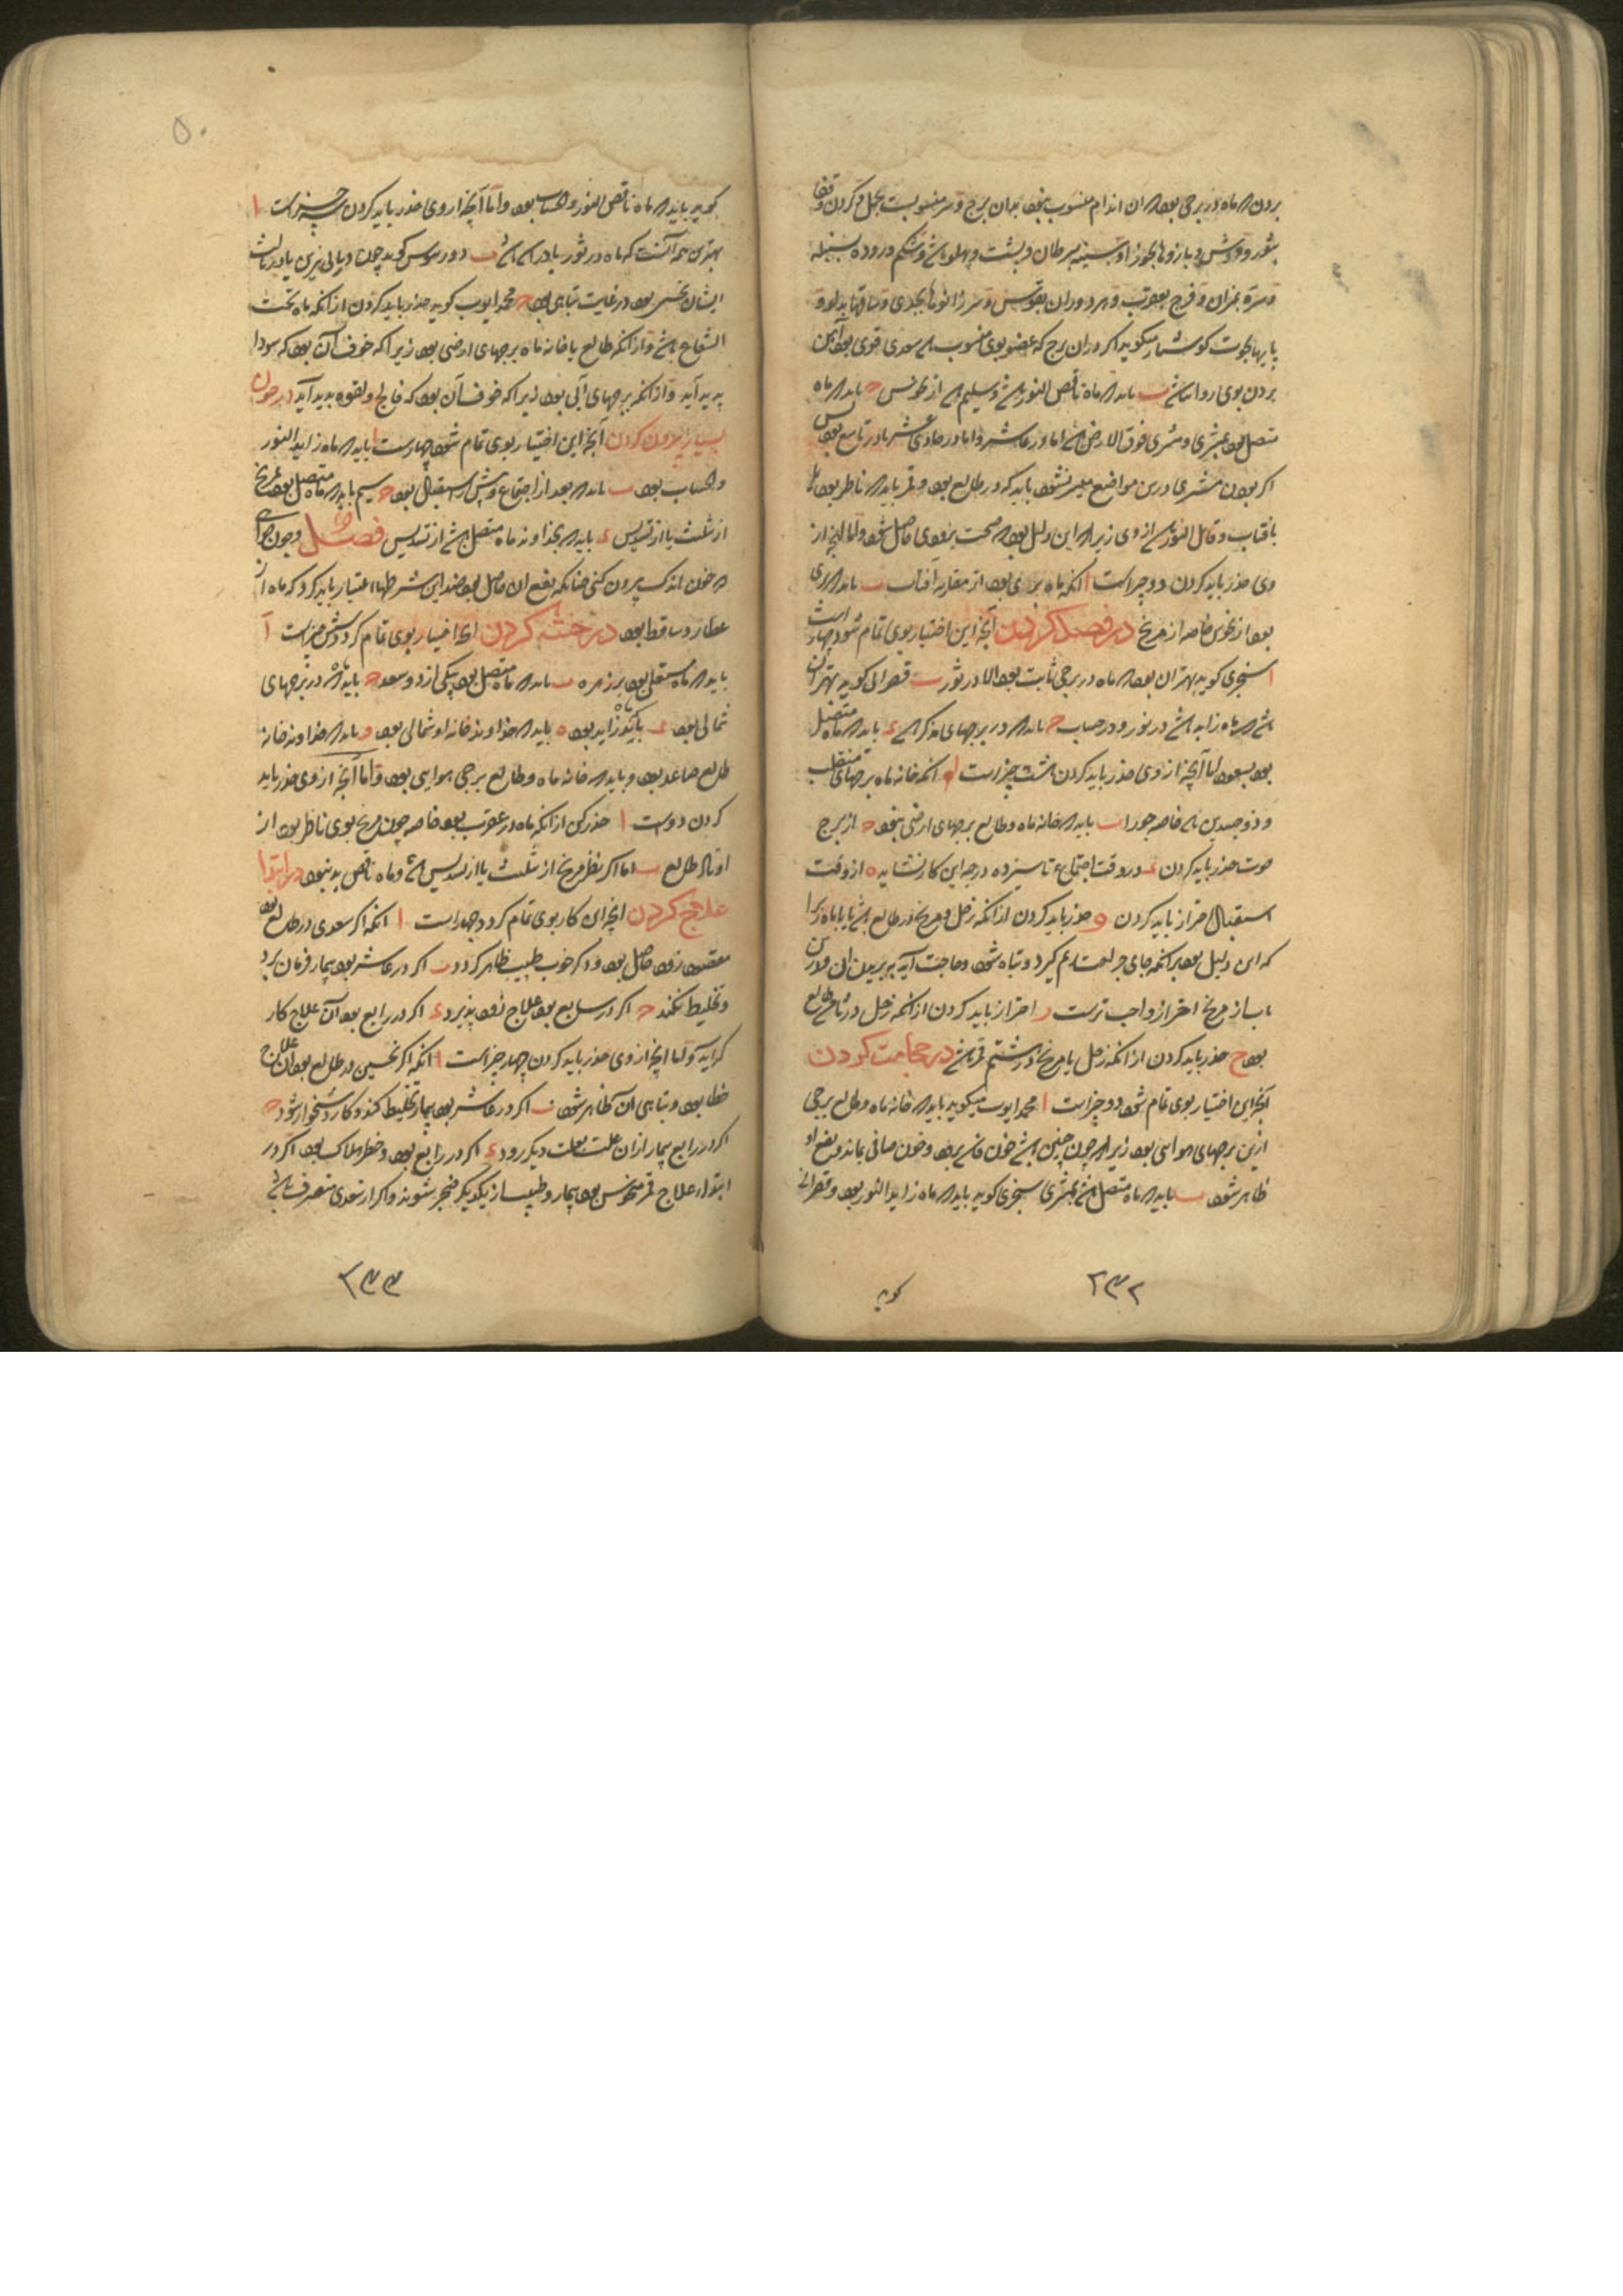 بردن که ماه در برجی بود که آن اندام منسوب بود بدان برج و سر منسوبست بحمل و کردن و قفا
بثور و دوش و بازوها بجوزا و سینه بسرطان و پشت و پهلو باسد و شکم و روده بسنبله
و سره بمیزان و فرج بعقرب و هر دو ران بقوس و سر زانوها بجدی و ساقها بدلو و
پایها بحوت کوشیار میکوید اکر در آن برج که عضو بوی منسوب است سعدی قوی بود آهن
بردن بوی روا باشد ب باید که ماه ناقص النور باشد و سلیم باشد از نحوس ح باید که ماه
متصل بود بمشتری و مشتری فوق الارض باشد اما در عاشر و اما در حادی عشر یا در تاسع بود پس
اکر بودن مشتری درین مواضع میسر نشود باید که در طالع بود و قمر باید که ناظر بود
بآفتاب و قابل النور باشد از وی زیرا که این دلیل بود که صحت بزودی حاصل شود و اما آنچه از
وی حذر باید کردن دو چیز است ا آنکه ماه بری بود از مقارنه آفتاب ب باید که بری
بود از نحوس خاصه از مریخ در فصد کردن آنچه این اختیار بوی تمام شود چهار است
ا سنجری کوید بهتر آن بود که ماه در برجی ثابت بود الا در ثور ب قصرانی کوید بهتر آن
باشد که ماه زاید باشد در نور و در حساب ح باید که در برجهای مذکر باشد ء باید که ماه متصل
بود بسعود اما آنچه از وی حذر باید کردن هشت چیز است ا آنکه خانه ماه برجهای منقلب
و ذو جسدین باشد خاصه جوزا ب باید که خانه ماه و طالع برجهای ارضی نبود ح از برج
حوت حذر باید کردن ء در وقت اجتماع تا سیزده درجه این کار نشاید ه از وقت
استقبال احتراز باید کردن و حذر باید کردن از آنکه زحل و مریخ در طالع باشد یا با ماه زیرا
که این دلیل بود بر آنکه جای جراحت ورم کیرد و تباه شود و حاجت آید ببریدن آن و درین
باب از مریخ احتراز واجب ترست ر احتراز باید کردن از آنکه زحل در ثامن طالع
بود ح حذر باید کردن از آنکه زحل یا مریخ در هشتم قمر باشد در حجامت کردن
آنچه این اختیار بوی تمام شود دو چیز است ا محمد ایوب میکوید باید که خانه ماه و طالع برجی
ازین برجهای هوایی بود زیرا که چون چنین باشد خون فاسد برود و خون صافی بماند و نفع او
ظاهر شود ب باید که ماه متصل باشد بمشتری سنجری کوید باید که ماه زاید النور بود و قصرانی
کوید
۲۳۲
۵۰
کوید باید که ماه ناقص النور و الحساب بود و اما آنچه از وی حذر باید کردن سه چیز است ا
بهترین همه آنست که ماه در ثور یا در اسد باشد ب دورسوس کوید چون دبالی نیرین یا در ثالث
ایشان نحس بود در غایت تباهی بود ح محمد ایوب کوید حذر باید کردن از آنکه ماه تحت
الشعاع باشد و از آنکه طالع یا خانه ماه برجهای ارضی بود زیرا که خوف آن بود که سودا
پدید آید و از آنکه برجهای آبی بود زیرا که خوف آن بود که فالج و لقوه پدید آید در خون
بسیار بیرون کردن آنچه این اختیار بوی تمام شود چهار است ا باید که ماه زاید النور
و الحساب بود ب باید که بعد از اجتماع و پیش از استقبال بود ح سیم باید که ماه متصل بود بمریخ
از تثلیث یا از تسدیس ء باید که بخداوند ماه متصل باشد از تسدیس فصل و چون خواهی
که خون اندک بیرون کنی چنانکه نفع آن حاصل بود ضد این شرطها اعتبار باید کرد که ماه از
عطارد ساقط بود در ختنه کردن آنچه اختیار بوی تمام کردد شش چیز است آ
باید که ماه مستعلی بود بر زهره ب باید که ماه متصل بود بیکی از دو سعد ح باید که در برجهای
شمالی بود ء باید که زاید بود ه باید که خداوند خانه او شمالی بود و باید که خداوند خانه
طالع صاعد بود و باید که خانه ماه و طالع برجی هوایی بود و اما آنچه از وی حذر باید
کردن دوست ا حذر کن از آنکه ماه در عقرب بود خاصه چون مریخ بوی ناظر بود از
اوتاد طالع ب اما اکر نظر مریخ از تثلیث یا از تسدیس باشد و ماه ناقص بد نبود در ابتدا
علاج کردن آنچه این کار بوی تمام کردد چهار است ا آنکه اکر سعدی در طالع بود
مقصود زود حاصل بود و ذکر خوب طبیب ظاهر کردد ب اکر در عاشر بود بیمار فرمان برد
و تخلیط نکند ح اکر در سابع بود علاج زود پذیرد ء اکر در رابع بود آن علاج کار
کر آید و اما آنچه از وی حذر باید کردن چهار چیز است ا آنکه اکر نحسین در طالع بود آن علاج
خطا بود و تباهی آن ظاهر شود ب اکر در عاشر بود بیمار تخلیط کند و کار دشخوار شود ح
اکر در رابع بیمار از آن علت بعلت دیکر رود ء اکر در رابع بود و خطر هلاک بود اکر در
ابتداء علاج قمر منحوس بود بیمار و طبیب از یکدیکر ضجر شوند و اکر از سعدی منصرف باشد
۲۳۳